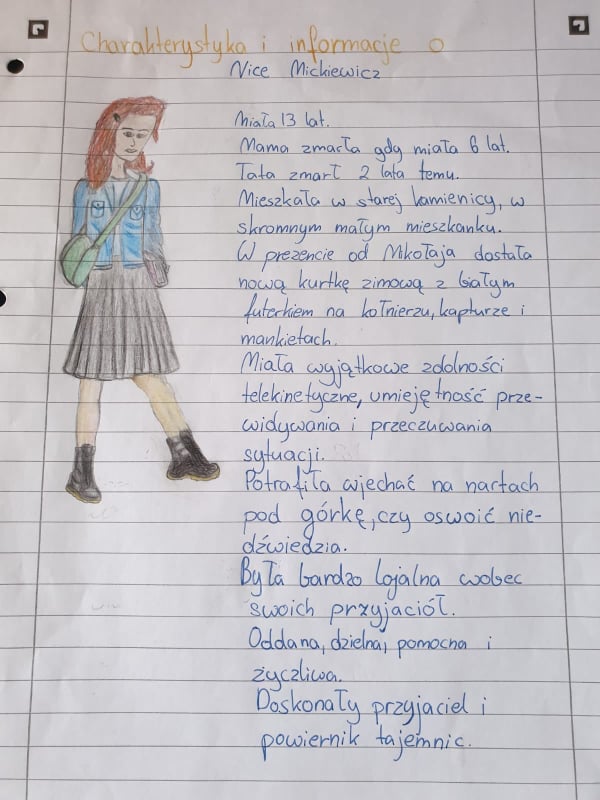 Charakterystyka i informacje o
Nice Mickiewicz
Miała 13 lat.
Mama zmarła gdy miała 6 lat.
Tata zmarł 2 lata temu.
Mieszkała w starej kamienicy, w
skromnym małym mieszkanku.
W prezencie od Mikołaja dostała
nową kurtkę zimową z białym
futerkiem na kołnierzu, kapturze i
mankietach.
Miała wyjątkowe zdolności
telekinetyczne, umiejętność prze-
widywania i przeczuwania
sytuacji.
Potrafiła wjechać na nartach
pod górkę, czy oswoić nie-
dźwiedzia.
Była bardzo lojalna wobec
swoich przyjaciół.
Oddana, dzielna, pomocna i
życzliwa.
Doskonały przyjaciel i
powiernik tajemnic.